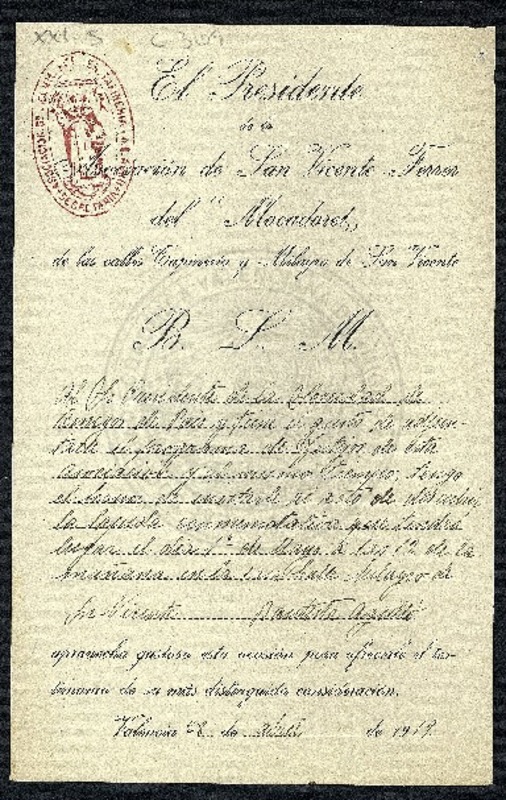 XXI-5 C 304
El Presidente
de la
Asociación de San Vicente Ferrer
del "Mocadoret"
de las calles Tapinería y Milagro de San Vicente
B. L. M.
Al Sr. Presidente de la Sociedad de
Amigos de Pais y tiene el gusto de adjun-
tarle el programa de festejos de esta
Asociación y al mismo tiempo, tengo
el honor de invitarle al acto de descubrir
la lapida conmemorativa que tendrá
lugar el dia 1º de Mayo a las 12 de la
mañana en la calle Milagro de
Sn Vicente Bautista
aprovecha gustoso esta ocasión para ofrecerle el tes-
timonio de su más distinguida consideración.
Valencia 28 de abril de 1919